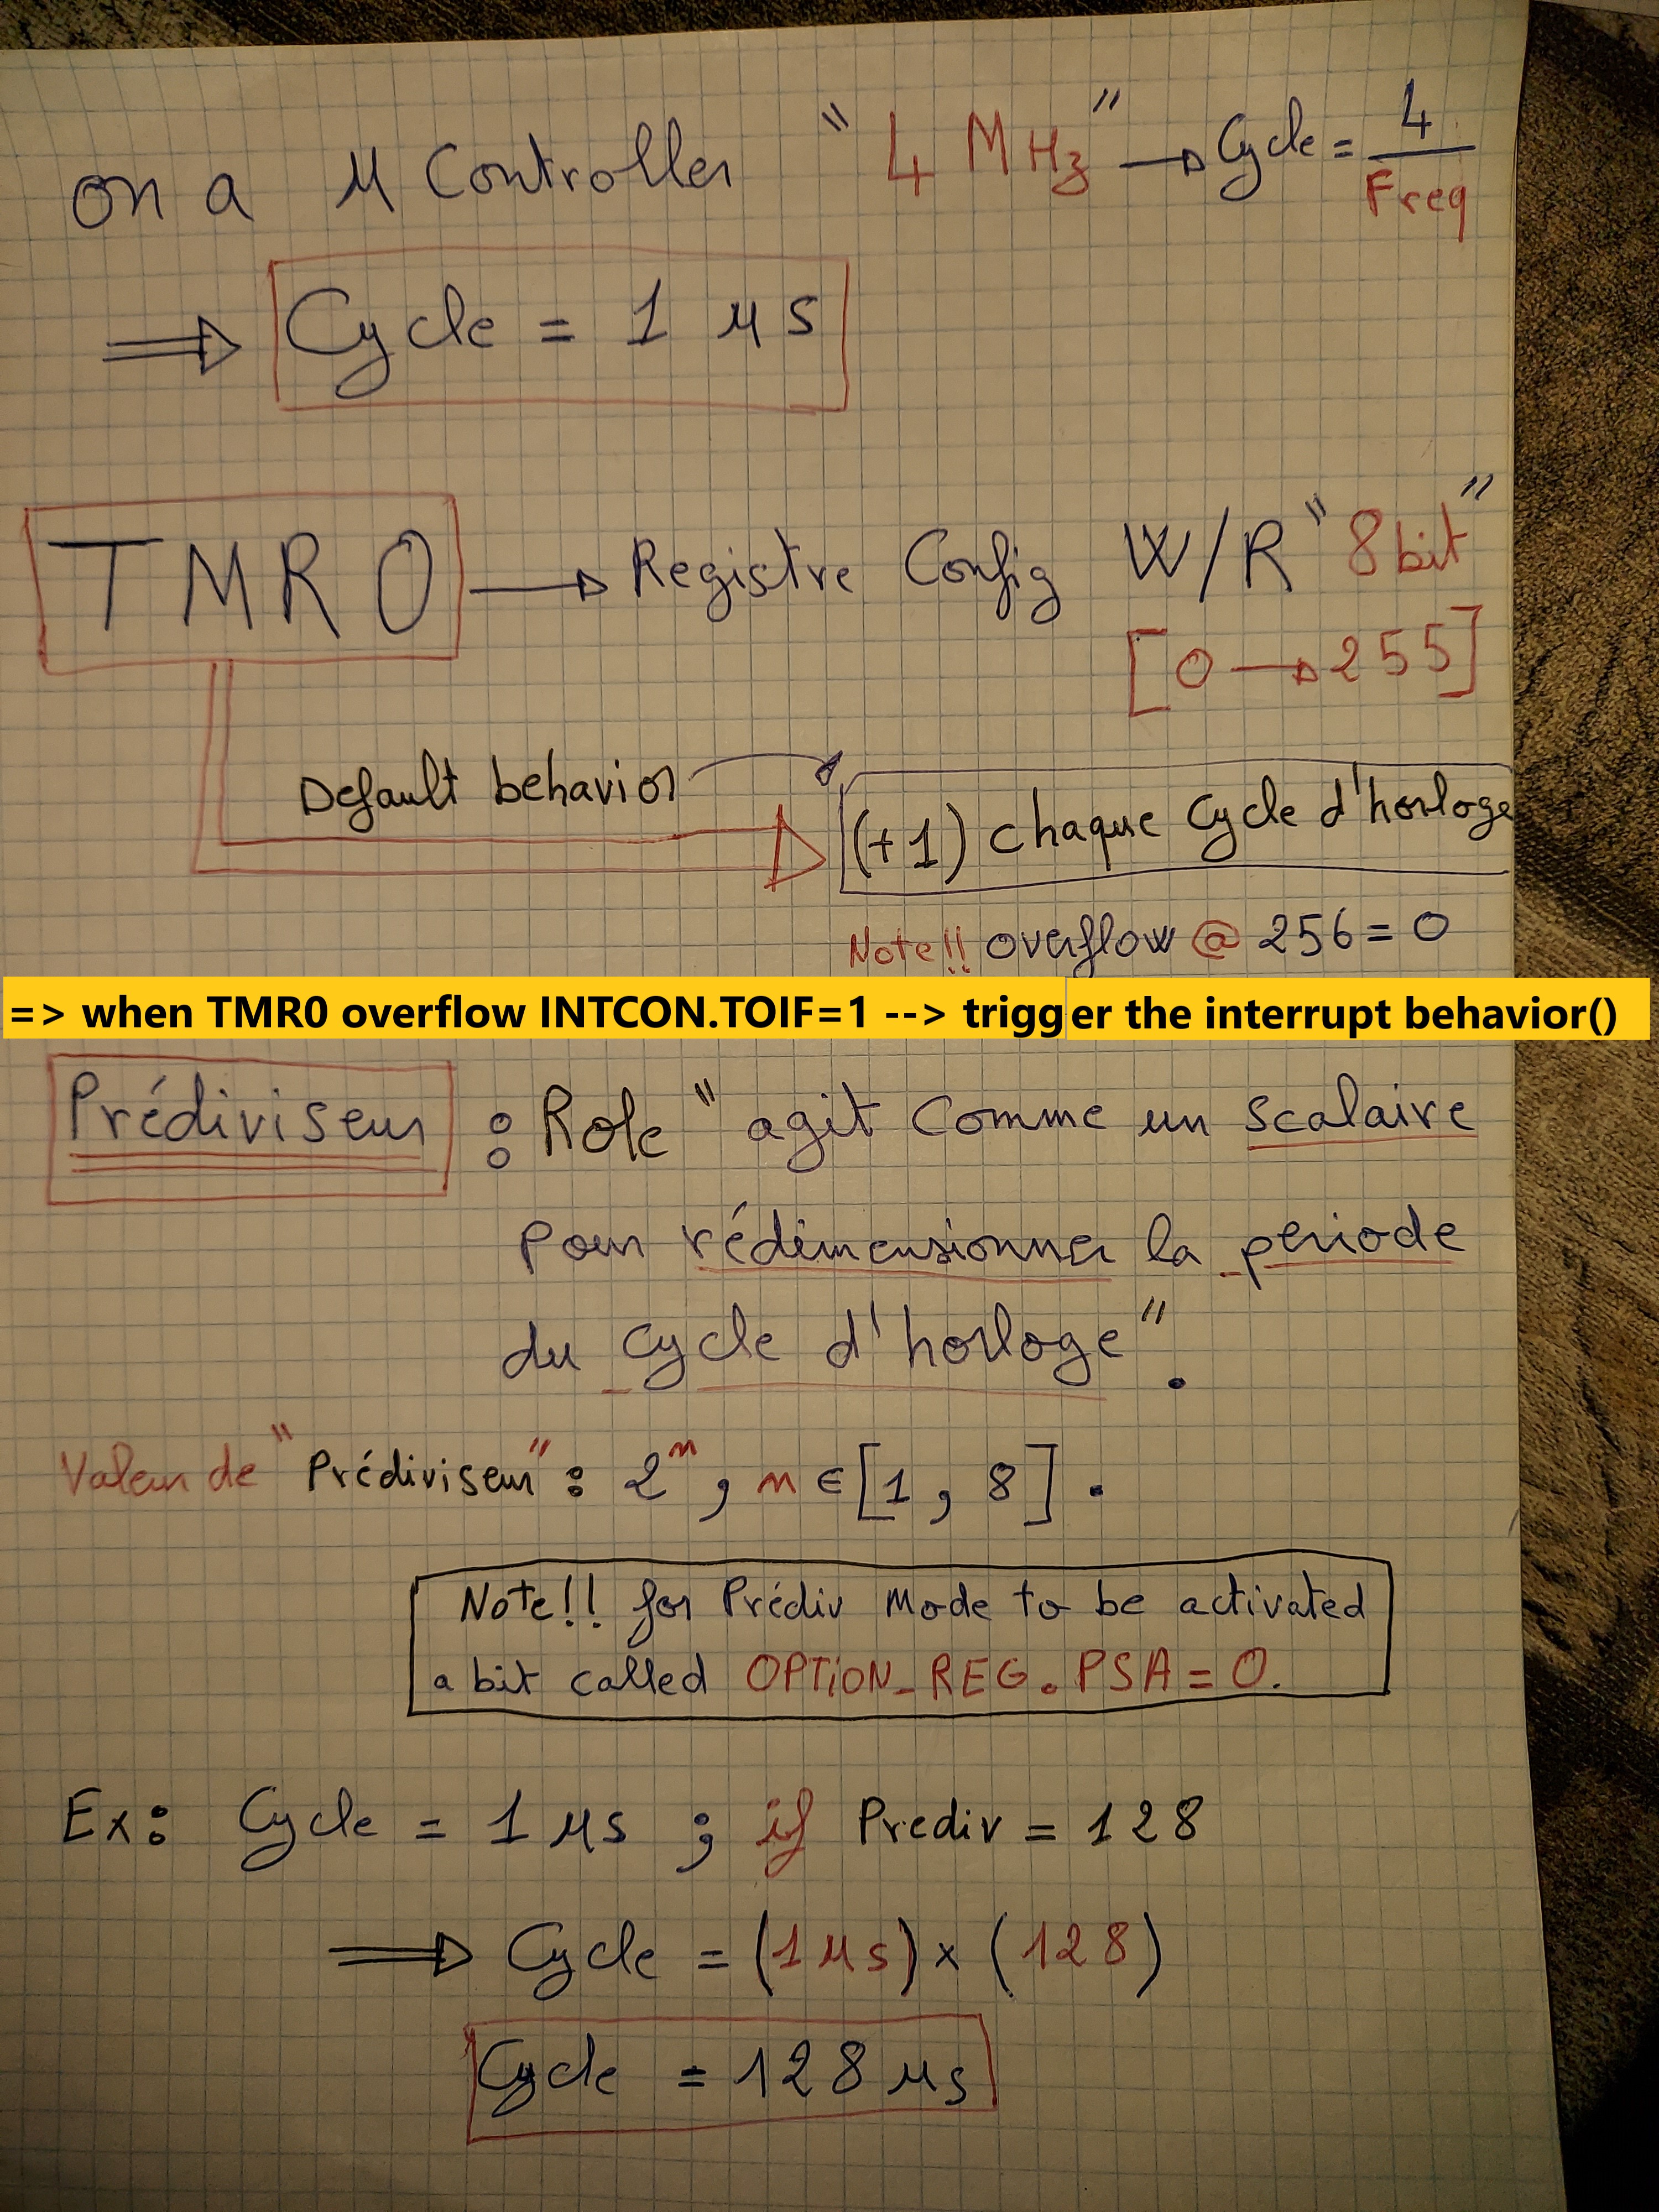 on a μ Controller "4 MHz" → Cycle = 4 / Freq
⇒ Cycle = 1 μs
TMR0 → Registre Config W/R "8 bit"
[0 → 255]
Default behavior
(+1) chaque cycle d'horloge
Note!! overflow @ 256 = 0
=> when TMR0 overflow INTCON.TOIF=1 --> trigger the interrupt behavior()
Prédiviseur : Role "agit comme un scalaire
pour rédimensionner la periode
du cycle d'horloge".
Valeur de "Prédiviseur" : 2ⁿ, n ∈ [1, 8].
Note!! for Prédiv Mode to be activated
a bit called OPTION_REG.PSA = 0.
Ex: Cycle = 1 μs ; if Prediv = 128
⇒ Cycle = (1 μs) × (128)
Cycle = 128 μs